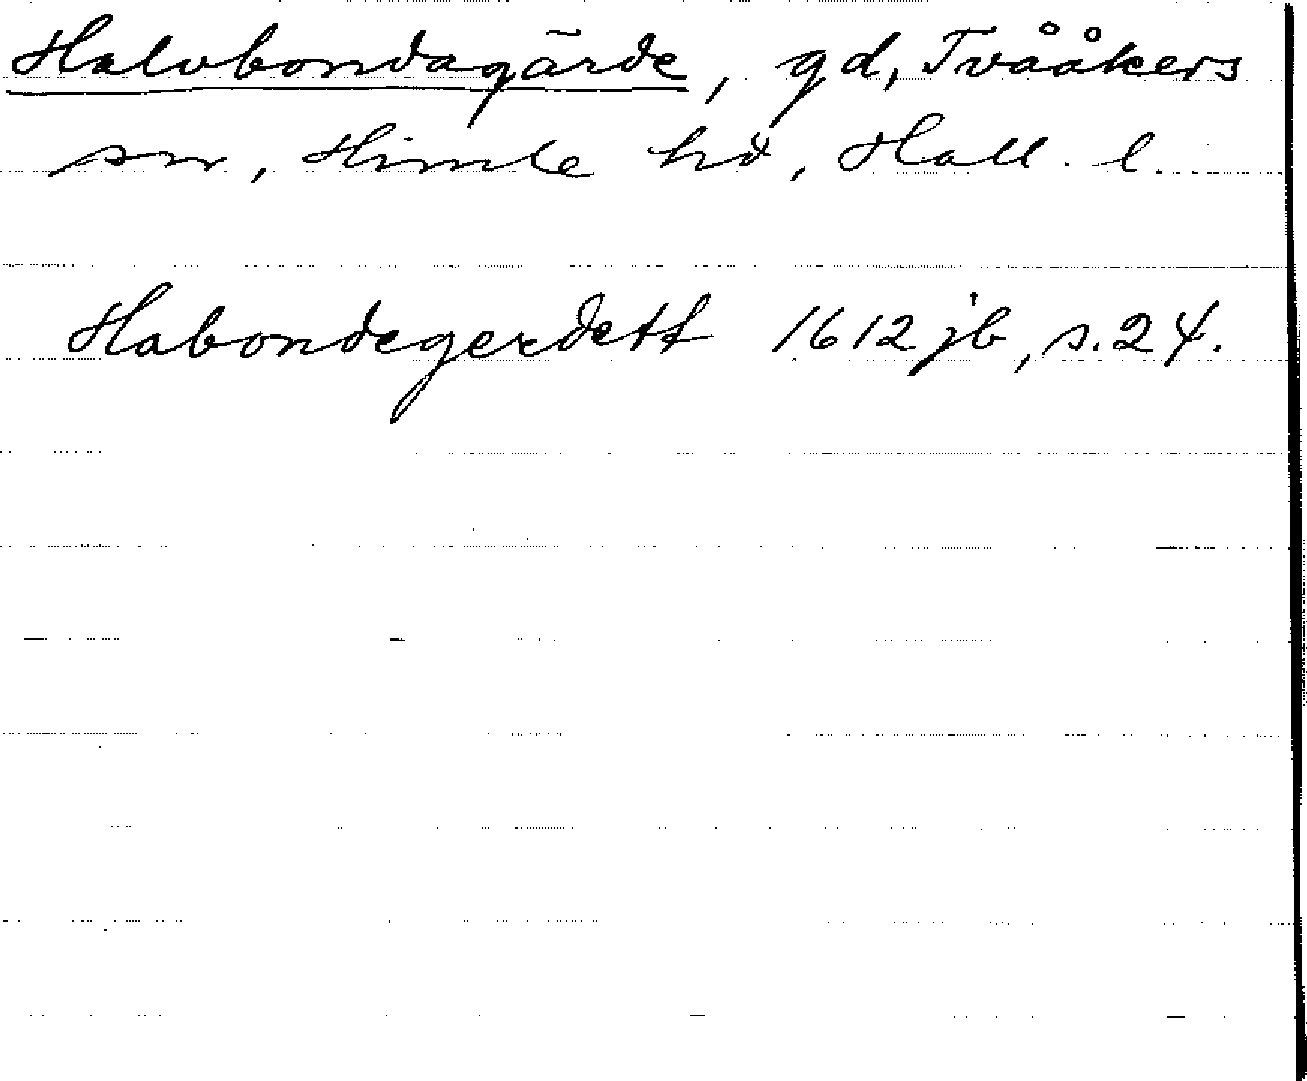 Halvbondagärde, gd, Tvååkers
sn, Himle hd, Hall. l.
Habondegerdett 1612 jb, s. 24.